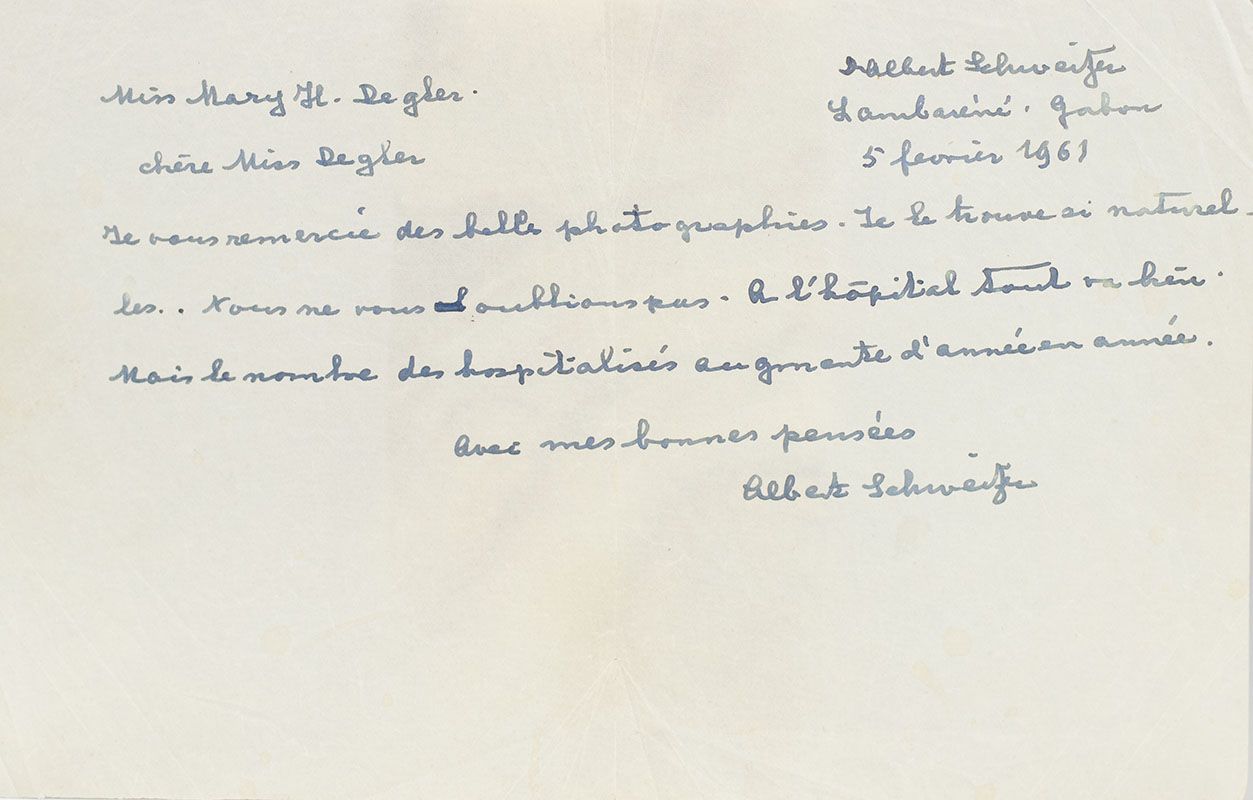 Dr Albert Schweitzer
Miss Mary H. Degler.
Lambaréné. Gabon
chère Miss Degler
5 fevrier 1961
Je vous remercie des belles photographies. Je le trouve si naturel-
les.. Nous ne vous oublions pas. A l'hôpital tout va bien.
Mais le nombre des hospitalisés augmente d'année en année.
Avec mes bonnes pensées
Albert Schweitzer